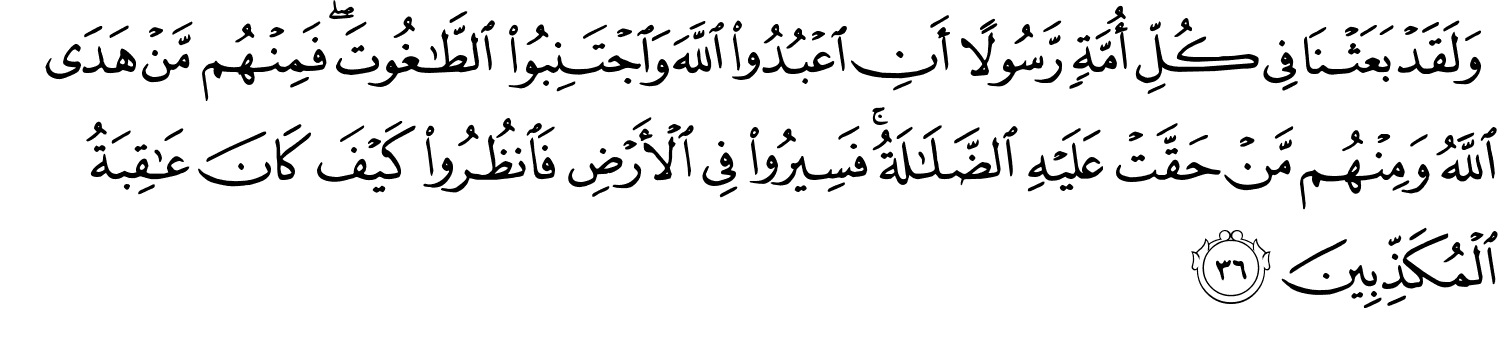 وَلَقَدۡ بَعَثۡنَا فِي كُلِّ أُمَّةٖ رَّسُولًا أَنِ ٱعۡبُدُواْ ٱللَّهَ وَٱجۡتَنِبُواْ ٱلطَّٰغُوتَۖ فَمِنۡهُم مَّنۡ هَدَى
ٱللَّهُ وَمِنۡهُم مَّنۡ حَقَّتۡ عَلَيۡهِ ٱلضَّلَٰلَةُۚ فَسِيرُواْ فِي ٱلۡأَرۡضِ فَٱنظُرُواْ كَيۡفَ كَانَ عَٰقِبَةُ
ٱلۡمُكَذِّبِينَ ٣٦